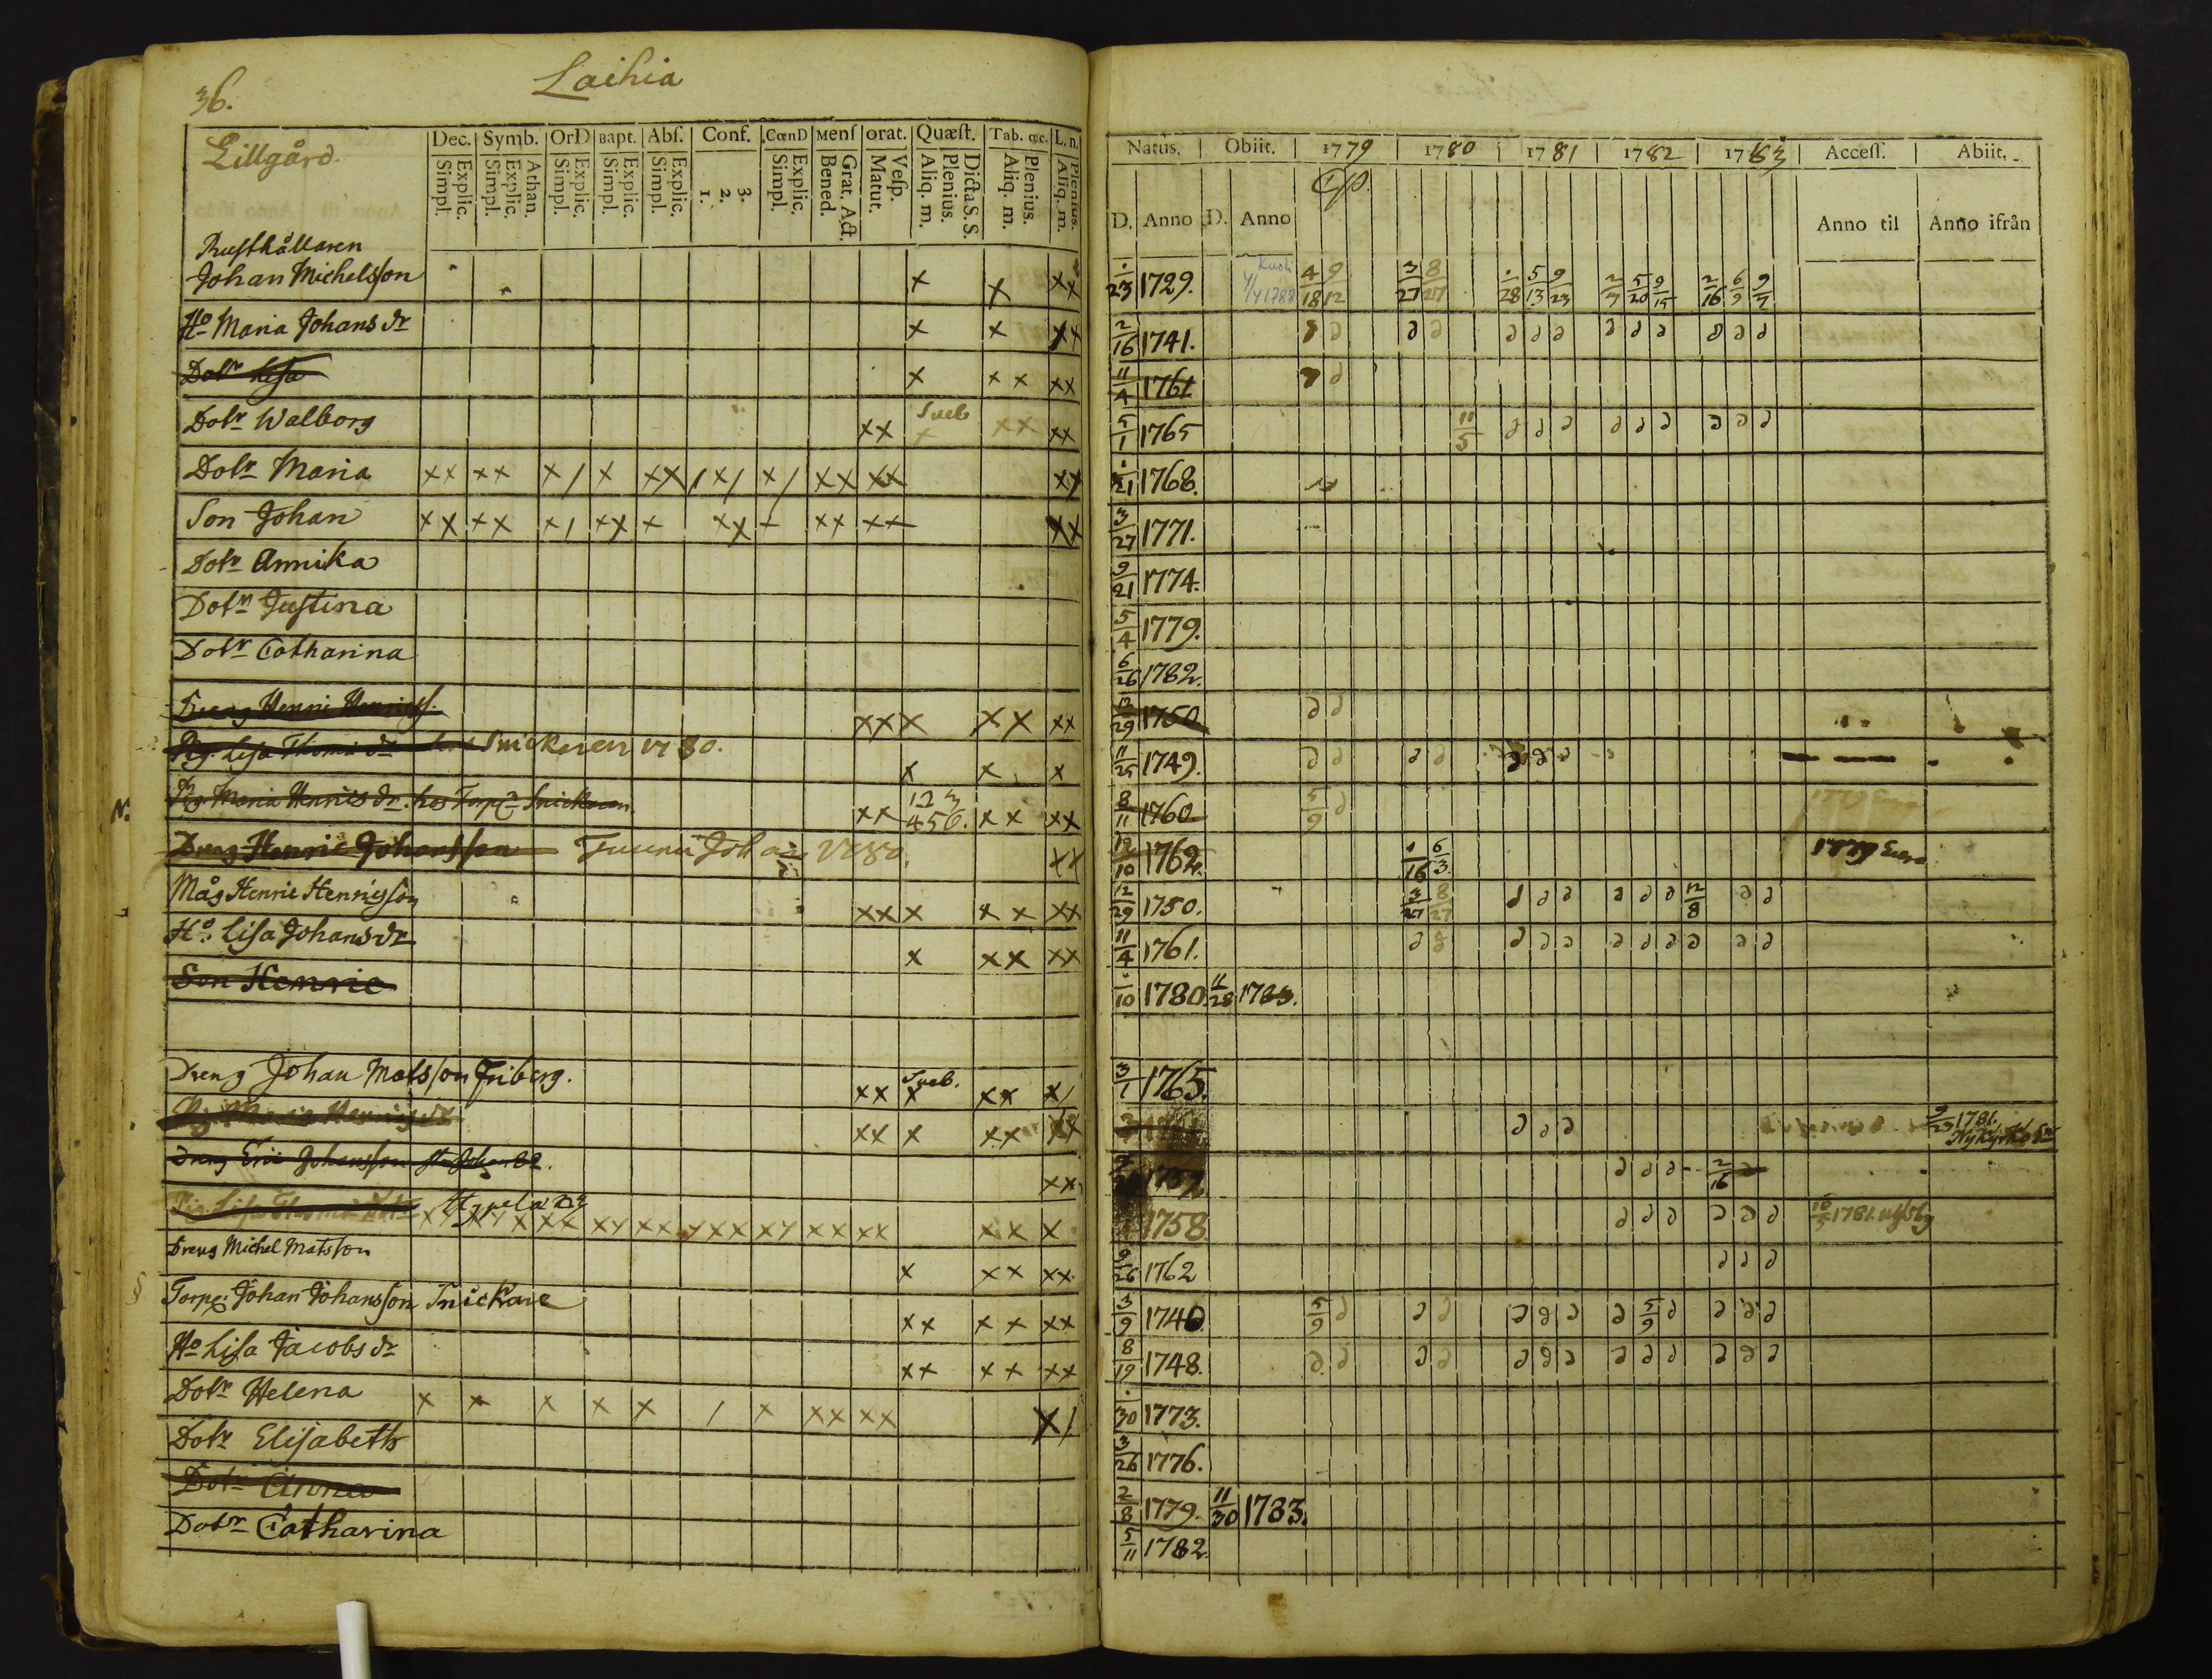 36.
Laihia
Lillgård.
Dec. Symb. OrD Bapt. Abſ. Conf. CœnD Menſ orat. Quæſt. Tab. œc. L. n.
Explic. Simpl. Athan. Explic. Simpl. Explic. Simpl. Explic. Simpl. Explic. Simpl. 3. 2. 1. Explic. Simpl. Grat. Act. Bened. Veſp. Matut. Dicta S. S. Plenius. Aliq. m. Plenius. Aliq. m. Plenius. Aliq. m.
Natus. Obiit. 1779 1780 1781 1782 1783 Acceſſ. Abiit.
D. Anno D. Anno Anno til Anno ifrån
Rusthållaren
Johan Michelsson x x xx 23 1729. 4/18 9/12 3/27 8/27 28 5/13 9/23 2/3 5/20 9/15 2/16 6/9 9/7
Ho Maria Johans dr x x xx 2/16 1741.
Dotr Lisa x x x xx 11/4 1761
Dotr Walborg xx Sveb x xx xx 5/1 1765 11/5
Dotr Maria xx xx x/ x xx /x/ x/ xx xx xx 21 1768.
Son Johan xx xx x/ xx x xx x xx xx xx 3/27 1771.
Dotr Annika 9/21 1774.
Dotr Justina 5/4 1779.
Dotr Catharina 6/26 1782.
Dreng Henric Henricss. xx x xx xx 12/29 1750
Pig. Lisa Thomæ dr Snickaren 1780. x x x 11/25 1749.
Pig. Maria Henrics dr. hos Torp. Snickaren xx 123 456. xx xx 8/11 1760 5/9
Dreng Henric Johansson xx 12/10 1762. 1/16 6/3
Måg Henric Henricsson xx x xx xx 12/29 1750. 3/27 8/27 12/8
Ho. Lisa Johans dr x xx xx 11/4 1761.
Son Henric 10 1780. 11/28 1783.
Dreng Johan Matsson Friberg. xx Sveb. x xx x/ 3/1 1765.
Pig. Maria Henrics dr xx x xx xx 9/23 1781. Nykyrko
Dreng Eric Johansson xx 1757. 2/16
Pig. Lisa Thomæ dr xx xx x xx xx xx xx xx xx xx xx x 1758. 1781
Dreng Michel Matsson x xx xx 9/26 1762
Torp. Johan Johansson Snickare xx xx xx 3/9 1740. 5/9 5/9
Ho Lisa Jacobs dr xx xx xx 8/19 1748.
Dotr Helena x x x x x / x xx xx x/ 30 1773.
Dotr Elisabeth 3/26 1776.
Dotr Anna 2/8 1779. 11/30 1783.
Dotr Catharina 5/11 1782.